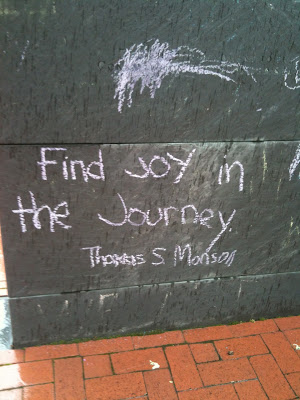 Find JoY in
the Journey
Thomas S. Monson